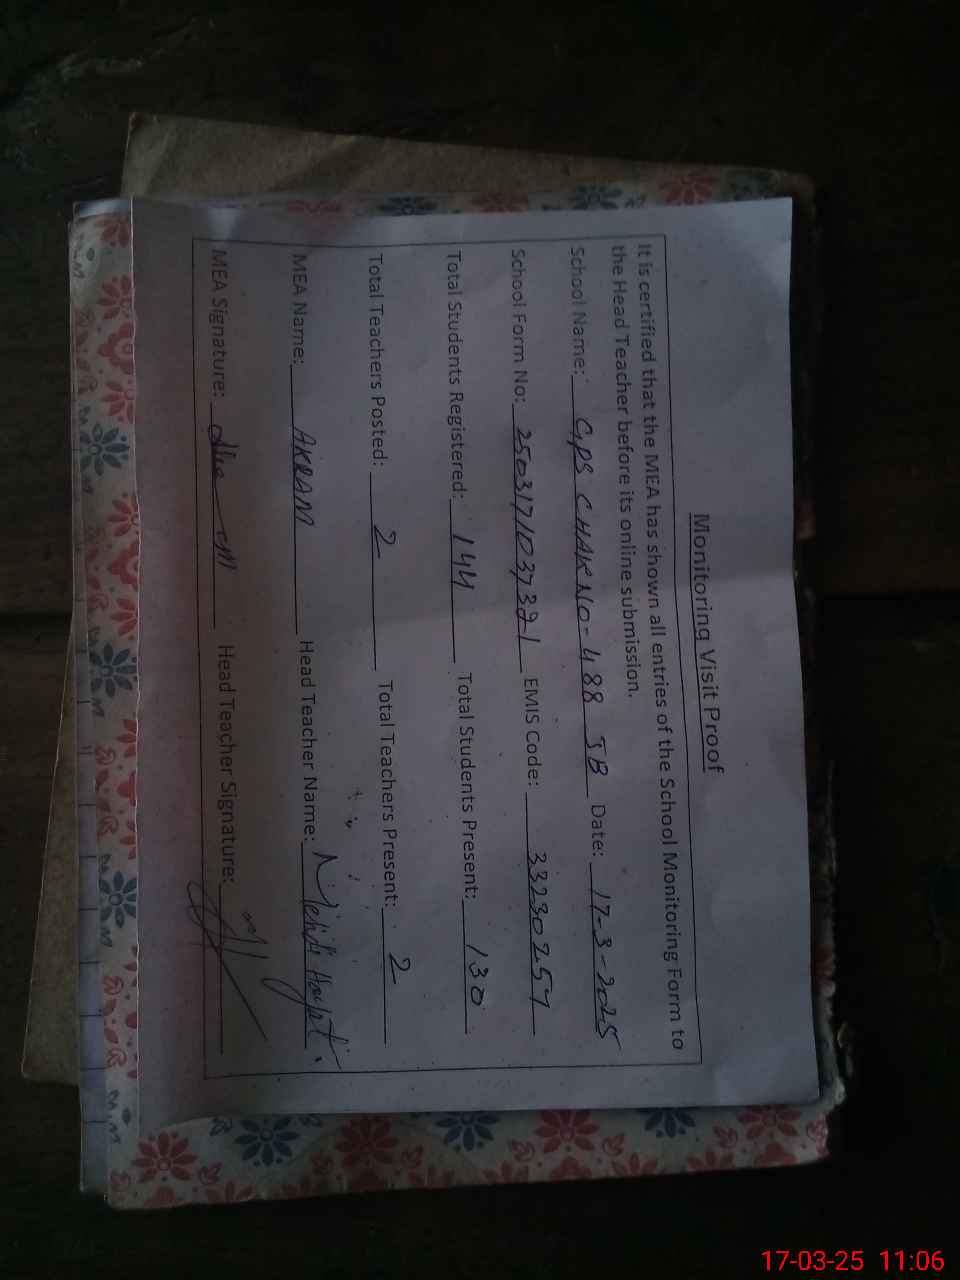 Monitoring Visit Proof
It is certified that the MEA has shown all entries of the School Monitoring Form to
the Head Teacher before its online submission.
School Name: GPS CHAK NO-488 JB Date: 17-3-2025
School Form No: EMIS Code: 33230257
Total Students Registered: 144 Total Students Present: 130
Total Teachers Posted: 2 Total Teachers Present: 2
MEA Name: AKRAM Head Teacher Name: Mehdi Hayat
MEA Signature: Head Teacher Signature:
17-03-25 11:06